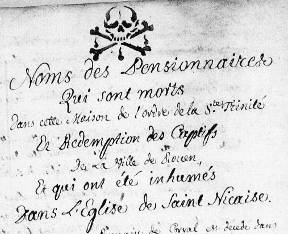 Noms des Pensionnaires
Qui sont morts
Dans cette Maison de l'ordre de la Ste Trinité
Et Rédemption des Captifs
De La Ville de Rouen,
Et qui ont été inhumés
Dans L'Eglise de Saint Nicaise.
decede dans